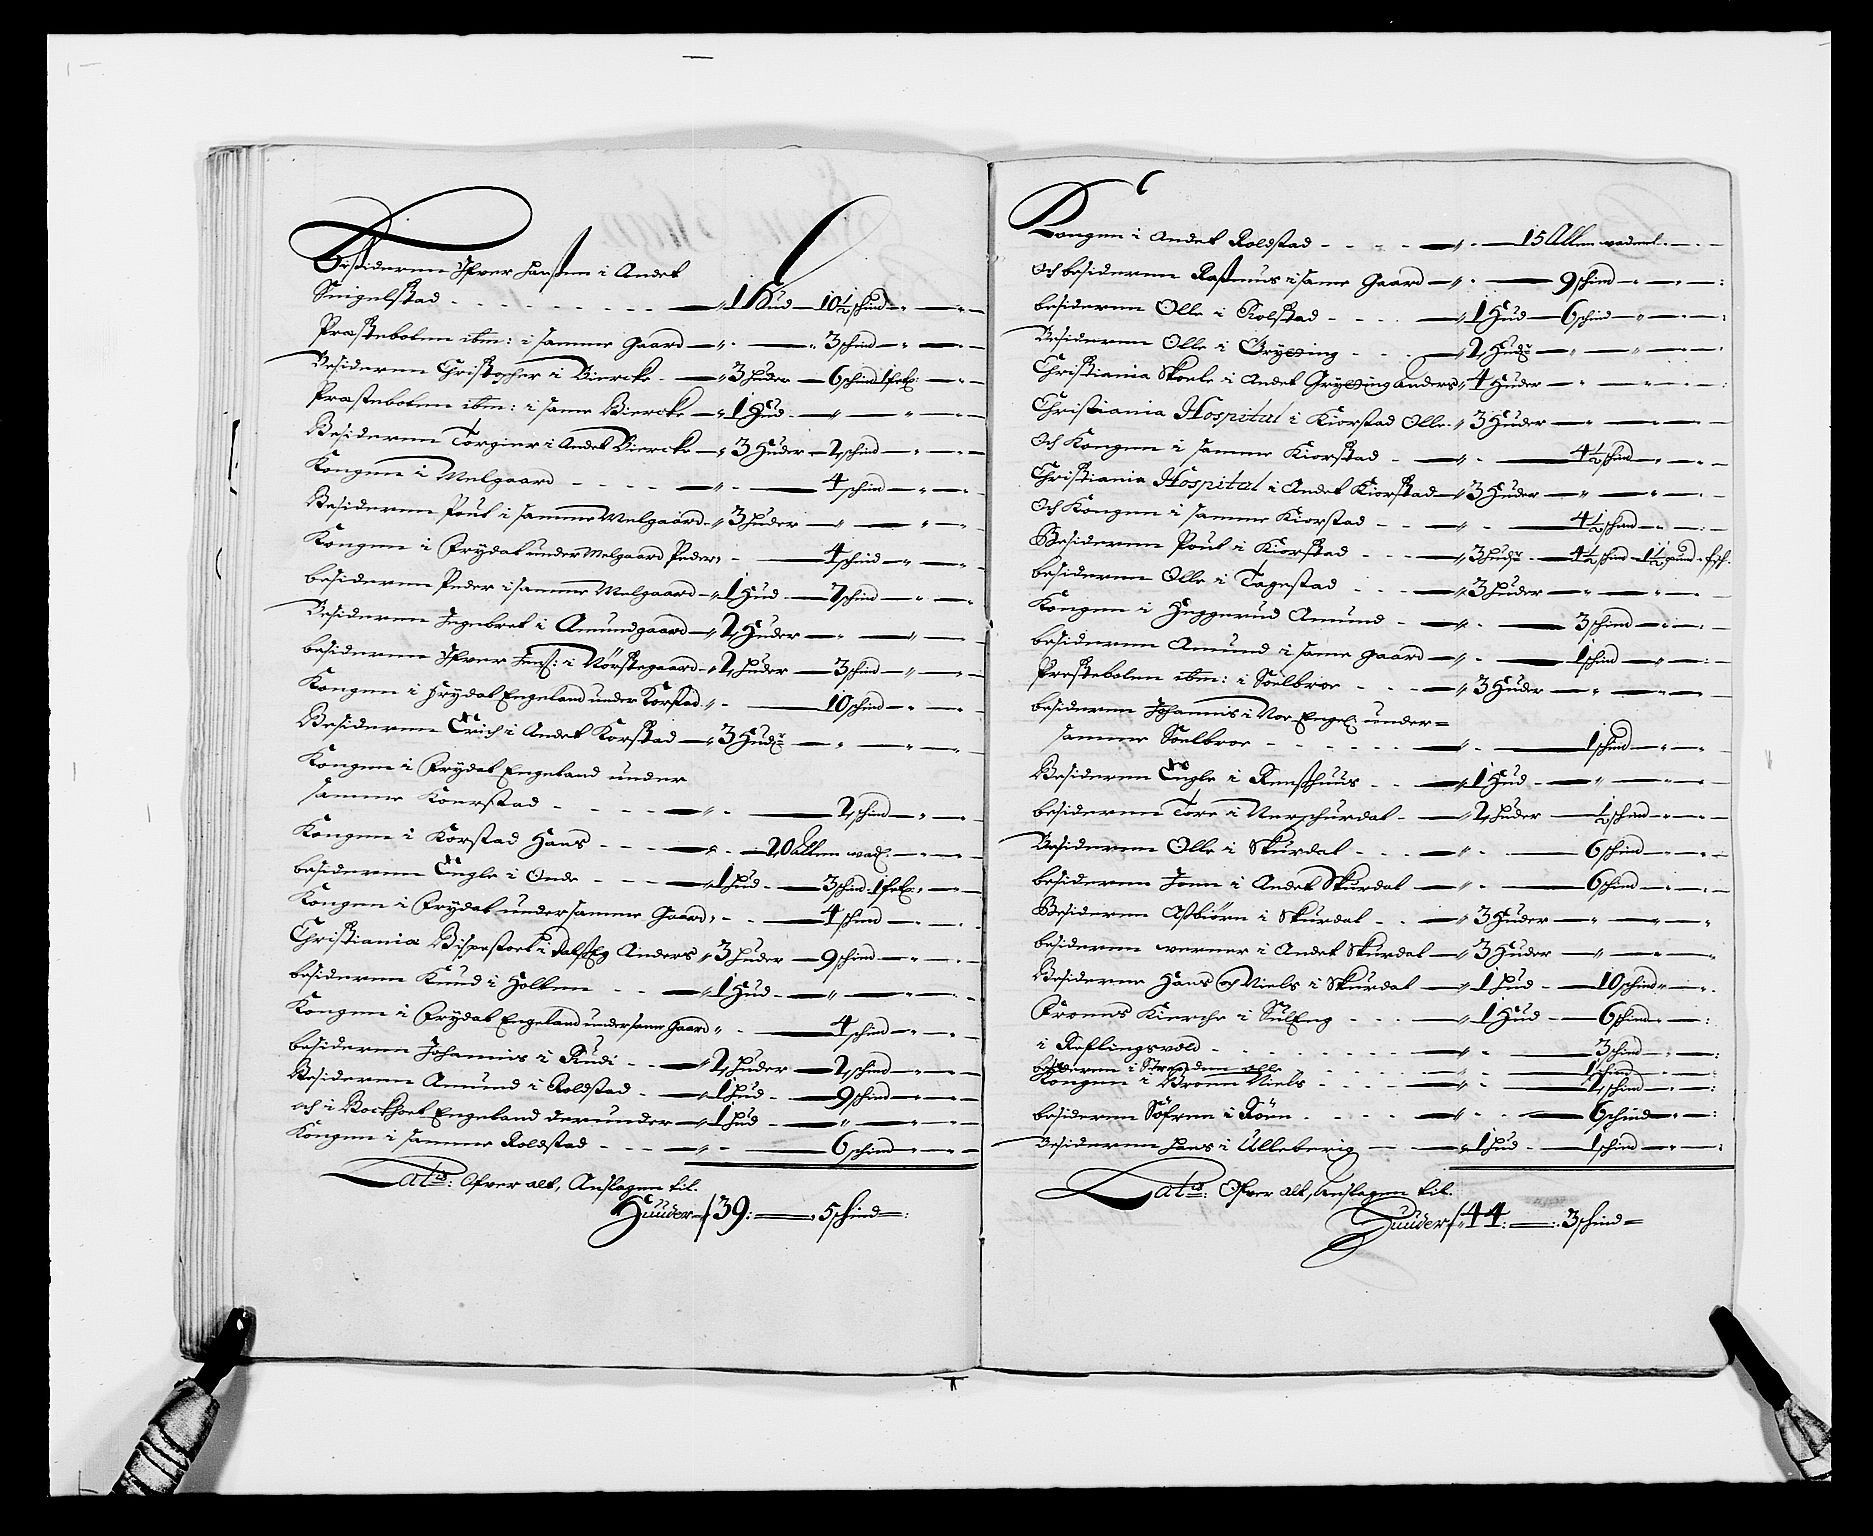 Besideren Ifver Hanßen i Andet
Snigelstad - - - - " 1 Hud - 10½ schind - " -
Præstebolen ibm: i samme Gaard - " - 3 schind - " -
Besideren Christopher i Biercke - " 3 Huder - 6 schind 1 "
Præstebolen ibm: i same Biercke - " 1 Hud - " - " -
Besideren Torgier i Andet Biercke - " 3 Huder - 2 schind - " -
Kongen i Melgaard - - - - " - 4 schind - " -
Besideren Poul i samme Melgaard - " 3 Huder - " - " -
Kongen i Frydal under Melgaard Peder " - 4 schind - " -
besideren Peder i samme Melgaard - " 1 Hud - 7 schind - " -
Besideren Ingebret i Amundgaard - " 2 Huder - " - " -
besideren Ifver Jenß: i Nørstegaard - " 2 Huder - 3 schind - " -
Kongen i Frydal Engeland under Korstad " - 10 schind - " -
Besideren Erich i Andet Korstad - " 3 Hudr - " - " -
Kongen i Frydal Engeland under
samme Koerstad - - - - " - 2 schind - " -
Kongen i Korstad Hans - - - " - 20 Allen wad: -
besideren Engle i Onde - - - " 1 Hud - 3 schind 1 " -
Kongen i Frydal under samme Gaard " - 4 schind -
Christiania Bispestoel i Anders " 3 Huder - 9 schind - " -
besideren Knud i Holten - - " 1 Hud - " - " -
Kongen i Frydal Engeland under same Gaard " - 4 schind - " -
besideren Johannis i Rudi - - " 2 Huder - 2 schind - " -
Besideren Amund i Roldstad - - " 1 Hud - 9 schind - " -
och i Engeland derunder - " 1 Hud - " - " -
Kongen i samme Roldstad - - - " - 6 schind - " -
Latis: Ofver alt, Anslagen til.
Huuder - 39: - " 5 schind - :
Kongen i Andet Roldstad - - - - " - 15 Allen wadmel - -
och besideren Rasmus i same Gaard - " - 9 schind - " - :
besideren Olle i Rolstad - - - " 1 Hud - 6 schind - " - :
Besideren Olle i Gryding - - - " 2 Hudr - " - " -
Christiania Skoele i Andet Gryding Anders " 4 Huder - " - " - :
Christiania Hospital i Kiorstad Olle - " 3 Huder - " - " -
och Kongen i samme Kiorstad - " - 4½ schind - " -
Christiania Hospital i Andet Kiorstad - " 3 Huder - " - " -
och Kongen i samme Kiorstad - - - " - 4½ schind - " - : -
Besideren Poul i Kiorstad - - - " 3 Hudr - 4½ schind - 1½ pund
besideren Olle i Tagestad - - - " 3 Huder - " - " -
Kongen i Heggerud Amund - - " - 3 schind - " -
besideren Amund i same gaard - " - 1 schind - " - : -
Prestebolen ibm: i Soelbroe - - - " 3 Huder - " - " -
besideren Johannis i Nor under =
samme Soelbroe - - - - " - 1 schind - " -
Besideren Engle i - - " 1 Hud - " - " -
besideren Tore i Nerschurdal - - " 2 Huder - ½ schind - " -
Besideren Olle i Skurdal - - - " - 6 schind - " - : -
besideren Jonn i Andet Skurdal - " - 6 schind - " - : -
Besideren Aßbiørn i Skurdal - - " 3 Huder - " - " - "
besideren werner i Andet Skurdal - " 3 Huder - " - " - "
Besideren Hans och Niels i Skurdal - " 1 Hud - 10 schind " - .
Froens Kierche i SulEng - - - " 1 Hud - 6 schind - " - :
i - - - - - " - 3 schind - " - :
besideren i olle - - - " - 1 schind - " - :
Kongen i Broen Niels - - - - " - 1 schind - " - :
besideren Søfren i Røen - - - - " - 6 schind - " - :
Besideren Hans i Ulleberig - - " 1 Hud - 1 schind - " - :
Latis: Ofver alt, anslagen til.
Huuder " 44: - : 3 schind =